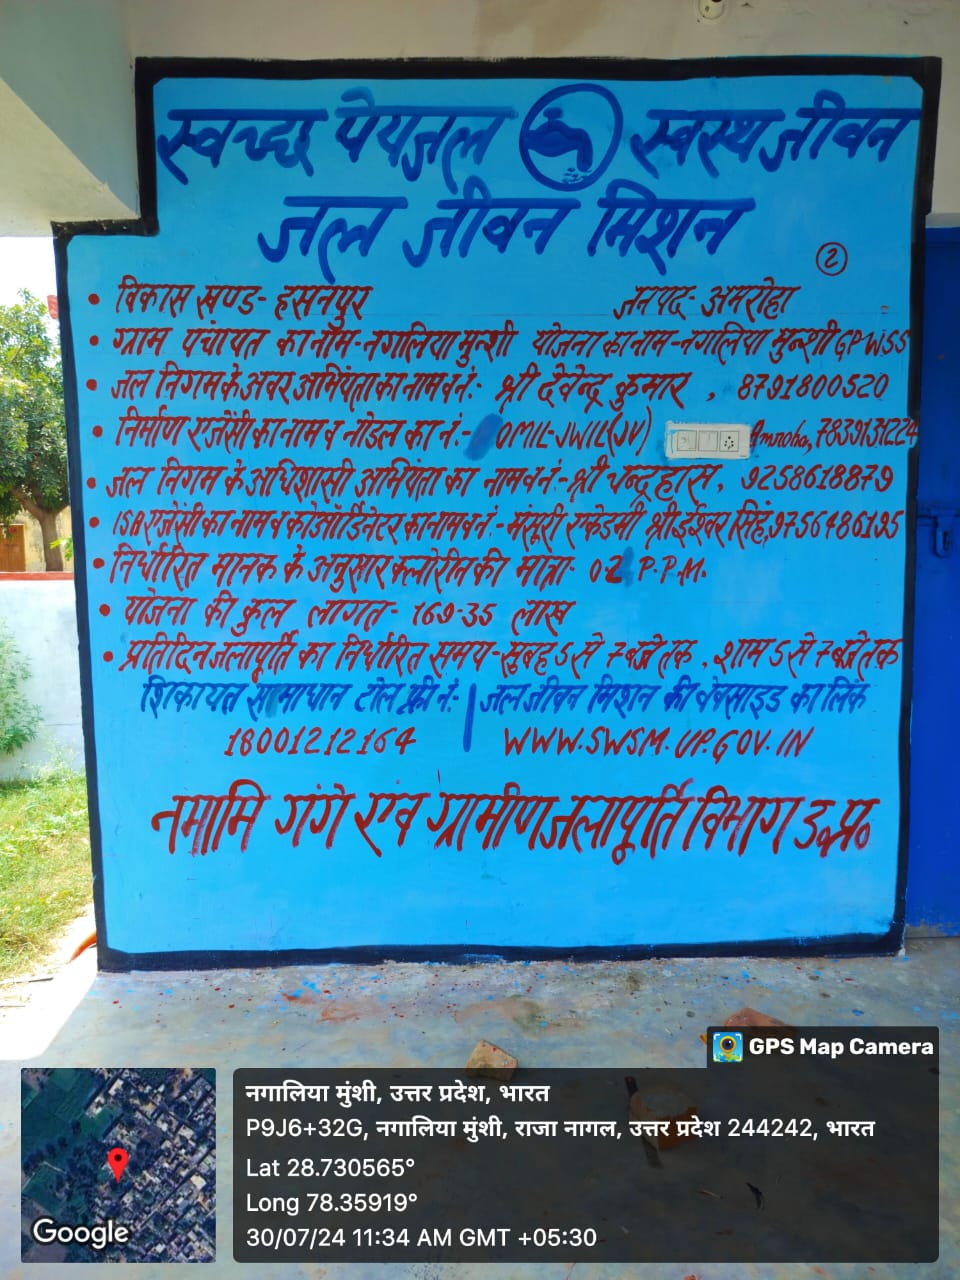 स्वच्छ पेयजल स्वस्थ जीवन
जल जीवन मिशन
2
• विकास खण्ड- हसनपुर जनपद- अमरोहा
• ग्राम पंचायत का नाम-नगालिया मुन्शी योजना का नाम-नगालिया मुन्शी GPWSS
• जल निगम के अवर अभियंता का नाम व नं:- श्री देवेन्द्र कुमार , 8791800520
• निर्माण एजेंसी का नाम व नोडल का नं:- OMIL-JWIL(JV) Amroha, 7839131224
• जल निगम के अधिशासी अभियंता का नाम व नं:-श्री चन्द्रहास, 9258618879
• ISA एजेंसी का नाम व कोऑर्डिनेटर का नाम व नं:-मंसूरी एकेडमी श्री ईश्वर सिंह,9756486195
• निर्धारित मानक के अनुसार क्लोरीन की मात्रा- 02 P.P.M.
• योजना की कुल लागत- 169-35 लाख
• प्रतिदिन जलापूर्ति का निर्धारित समय-सुबह 5 से 7 बजे तक , शाम 5 से 7 बजे तक
शिकायत सामाधान टोल फ्री नं:- | जल जीवन मिशन की वेवसाइड का लिंक
18001212164 WWW.SWSM.UP.GOV.IN
नमामि गंगे एंव ग्रामीण जलापूर्ति विभाग उ०प्र०
GPS Map Camera
नगालिया मुंशी, उत्तर प्रदेश, भारत
P9J6+32G, नगालिया मुंशी, राजा नागल, उत्तर प्रदेश 244242, भारत
Lat 28.730565°
Long 78.35919°
30/07/24 11:34 AM GMT +05:30
Google